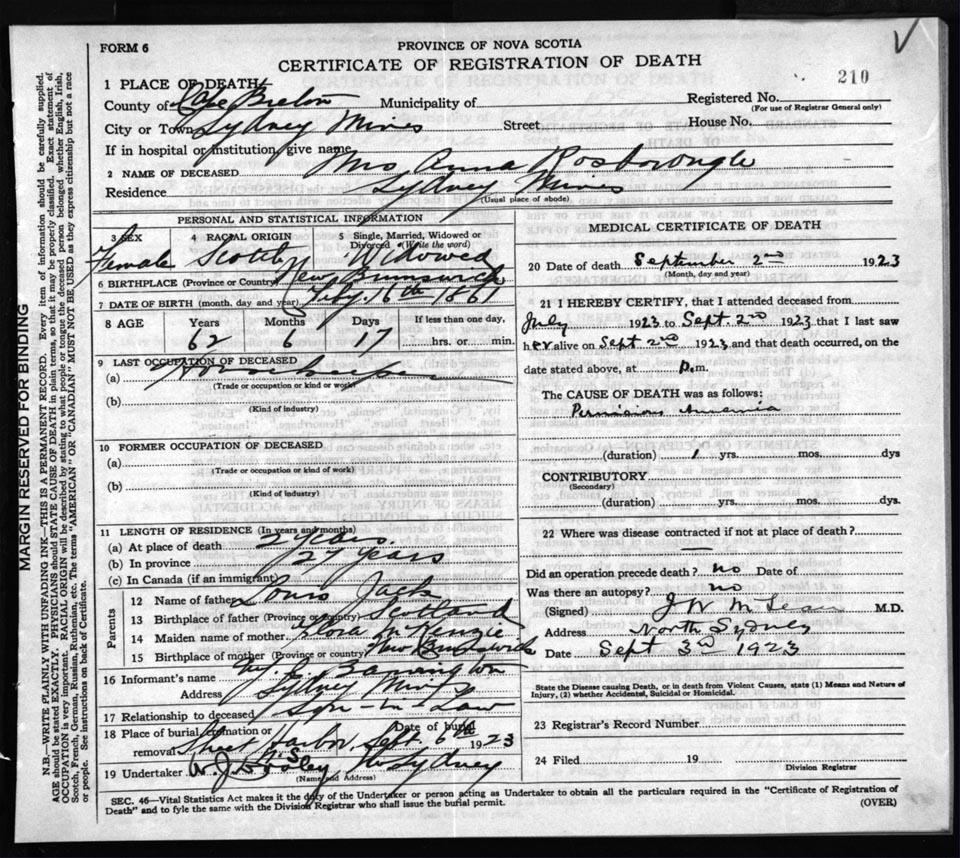 FORM 6
PROVINCE OF NOVA SCOTIA
CERTIFICATE OF REGISTRATION OF DEATH
210
1 PLACE OF DEATH
County of Cape Breton Municipality of Registered No.
(For use of Registrar General only)
City or Town Sydney Mines Street House No.
If in hospital or institution, give name
2 NAME OF DECEASED Mrs Anna Rosborougle
Residence Sydney Mines
(Usual place of abode)
PERSONAL AND STATISTICAL INFORMATION
3 SEX 4 RACIAL ORIGIN 5 Single, Married, Widowed or Divorced (Write the word)
Female Scotch Widowed
6 BIRTHPLACE (Province or Country) New Brunswick
7 DATE OF BIRTH (month, day and year) Feby. 16th 1861
8 AGE Years Months Days If less than one day,
62 6 17 hrs. or min.
9 LAST OCCUPATION OF DECEASED
(a) Housekeeper
(Trade or occupation or kind or work)
(b)
(Kind of industry)
10 FORMER OCCUPATION OF DECEASED
(a)
(Trade or occupation or kind of work)
(b)
(Kind of industry)
11 LENGTH OF RESIDENCE (In years and months)
(a) At place of death 2 years.
(b) In province 27 years
(c) In Canada (if an immigrant)
Parents
12 Name of father Louis Jack
13 Birthplace of father (Province or country) Scotland
14 Maiden name of mother Flora McKenzie
15 Birthplace of mother (Province or country) New Brunswick
16 Informant's name Barrington
Address Sydney Mines
17 Relationship to deceased Son-in-Law
18 Place of burial, cremation or removal Sheet Harbor N.S. Date of burial Sept. 6th 1923
19 Undertaker A. J. Beasley N. Sydney
(Name and Address)
MEDICAL CERTIFICATE OF DEATH
20 Date of death September 2nd 1923
(Month, day and year)
21 I HEREBY CERTIFY, that I attended deceased from
July 1923 to Sept 2nd 1923 that I last saw
her alive on Sept 2nd 1923 and that death occurred, on the
date stated above, at P.m.
The CAUSE OF DEATH was as follows:
Pernicious Anemia
(duration) 1 yrs. mos. dys
CONTRIBUTORY
(Secondary)
(duration) yrs. mos. dys.
22 Where was disease contracted if not at place of death?
Did an operation precede death? no Date of
Was there an autopsy? no
(Signed) J W McLean M.D.
Address North Sydney
Date Sept 3rd 1923
State the Disease causing Death, or in death from Violent Causes, state (1) Means and Nature of
Injury, (2) whether Accidental, Suicidal or Homicidal.
23 Registrar's Record Number
24 Filed 19
Division Registrar
SEC. 46—Vital Statistics Act makes it the duty of the Undertaker or person acting as Undertaker to obtain all the particulars required in the "Certificate of Registration of
Death" and to fyle the same with the Division Registrar who shall issue the burial permit. (OVER)
MARGIN RESERVED FOR BINDING
N.B.—WRITE PLAINLY WITH UNFADING INK—THIS IS A PERMANENT RECORD. Every item of information should be carefully supplied.
AGE should be stated EXACTLY. PHYSICIANS should STATE CAUSE OF DEATH in plain terms, so that it may be properly classified. Exact statement of
OCCUPATION is very important. RACIAL ORIGIN will be described by stating to what people or tongue the deceased person belonged whether English, Irish,
Scotch, French, German, Russian, Ruthenian, etc. The terms "AMERICAN" OR "CANADIAN" MUST NOT BE USED as they express citizenship but not a race
or people. See instructions on back of Certificate.